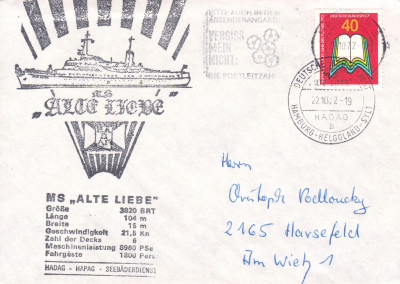 BITTE AUCH IN DER
ABSENDERANGABE
VERGISS
MEIN
NICHT:
DIE POSTLEITZAHL
DEUTSCHE BUNDESPOST
40
DEUTSCHE
22.10.72-19
HADAG
b
HAMBURG-HELGOLAND-SYLT
MS
„ALTE LIEBE"
MS „ALTE LIEBE"
Größe 3820 BRT
Länge 104 m
Breite 15 m
Geschwindigkeit 21,5 Kn
Zahl der Decks 6
Maschinenleistung 8960 PSe
Fahrgäste 1800 Pers.
HADAG - HAPAG - SEEBÄDERDIENST
Herrn
2165 Harsefeld
Am Wieh 1